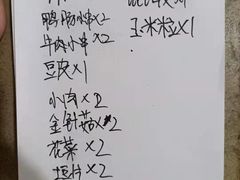 鸭肠小串×2
牛肉小串×2
豆皮×1
小肉×2
金针菇×2
花菜×2
×2
×1
玉米粒×1